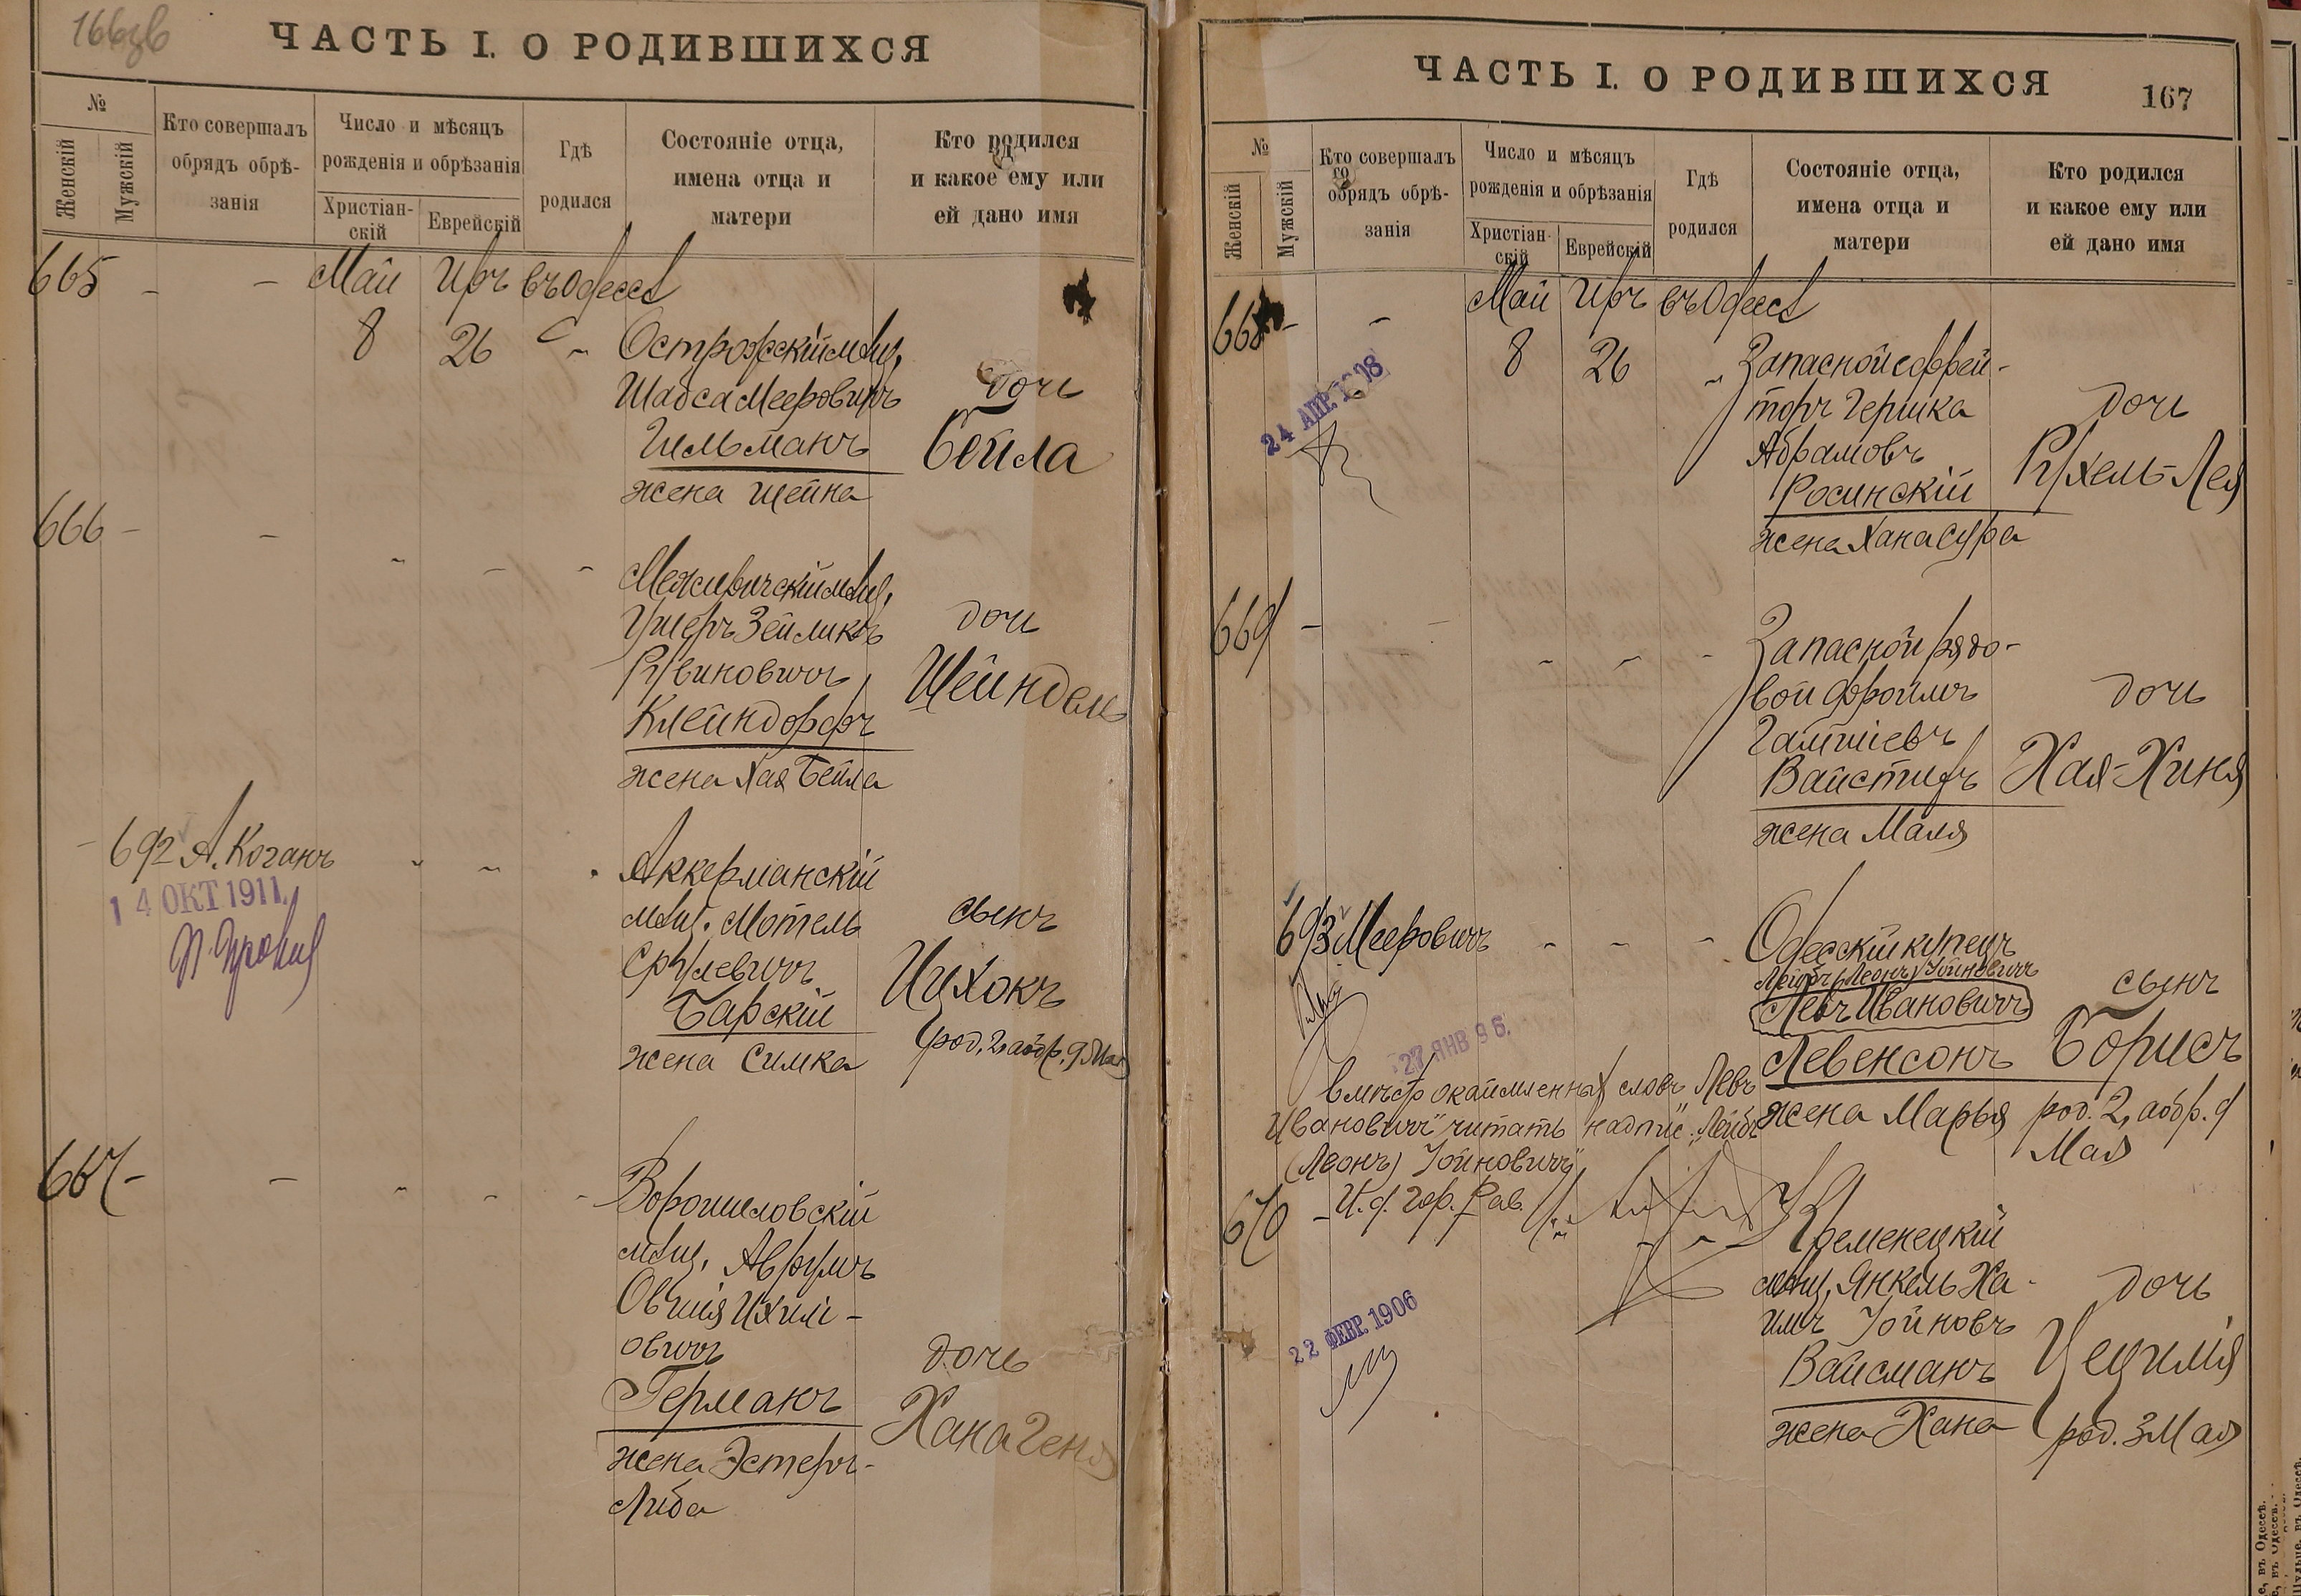 166об
ЧАСТЬ I. О РОДИВШИХСЯ
№
Женскій
Мужскій
Кто совершалъ
обрядъ обрѣ-
занія
Число и мѣсяцъ
рожденія и обрѣзанія
Христіан-
скій
Еврейскій
Гдѣ
родился
Состояніе отца,
имена отца и
матери
Кто родился
и какое ему или
ей дано имя
665 - - Май Иръ въ Одессѣ
8 26 Острожскій мѣщ.
Шабса Мееровичъ дочь
Гильманъ Бейла
жена Шейна
666 - -
мѣщ.
Ушеръ Зейликъ дочь
Рувиновичъ Шейндель
Клейндорфъ
жена Хая Бейла
692 А. Коганъ Аккерманскій
14 ОКТ 1911
мѣщ. Мотель сынъ
Срулевичъ Ицхокъ
Барскій
жена Симка род. 2, а обр. 9 Мая
667 - -
Ворошиловскій
мѣщ. Аврумъ
Овшія Ихил-
овичъ дочь
Германъ Хана Геня
жена Эстеръ-
Либа
ЧАСТЬ I. О РОДИВШИХСЯ
167
№
Женскій
Мужскій
Кто совершалъ
обрядъ обрѣ-
занія
Число и мѣсяцъ
рожденія и обрѣзанія
Христіан-
скій
Еврейскій
Гдѣ
родился
Состояніе отца,
имена отца и
матери
Кто родился
и какое ему или
ей дано имя
668 - - Май Иръ въ Одессѣ
8 26 Запасной ефрей-
24 АПР.
торъ Гершка дочь
Абрамовъ Рухель-Лея
Росинскій
жена Хана Сура
669 -
Запасной рядо-
вой Фроимъ дочь
Вайстихъ Хая-Хиня
жена Маля
693 Мееровичъ Одесскій купецъ
Лейбъ (Леонъ) Іойновичъ сынъ
Левъ Ивановичъ
Левенсонъ Борисъ
27 ЯНВ 96.
жена Марья род. 2, а обр. 9
Мая
вмѣсто окаймленныхъ словъ „Левъ
Ивановичъ" читать надпис. „Лейбъ
(Леонъ) Іойновичъ"
И. д. Гор. Рав.
670 - Кременецкій
22 ФЕВР. 1906
мѣщ. Янкель Ха- дочь
имъ Іойновъ
Вайсманъ Цецилія
жена Хана род. 3 Мая